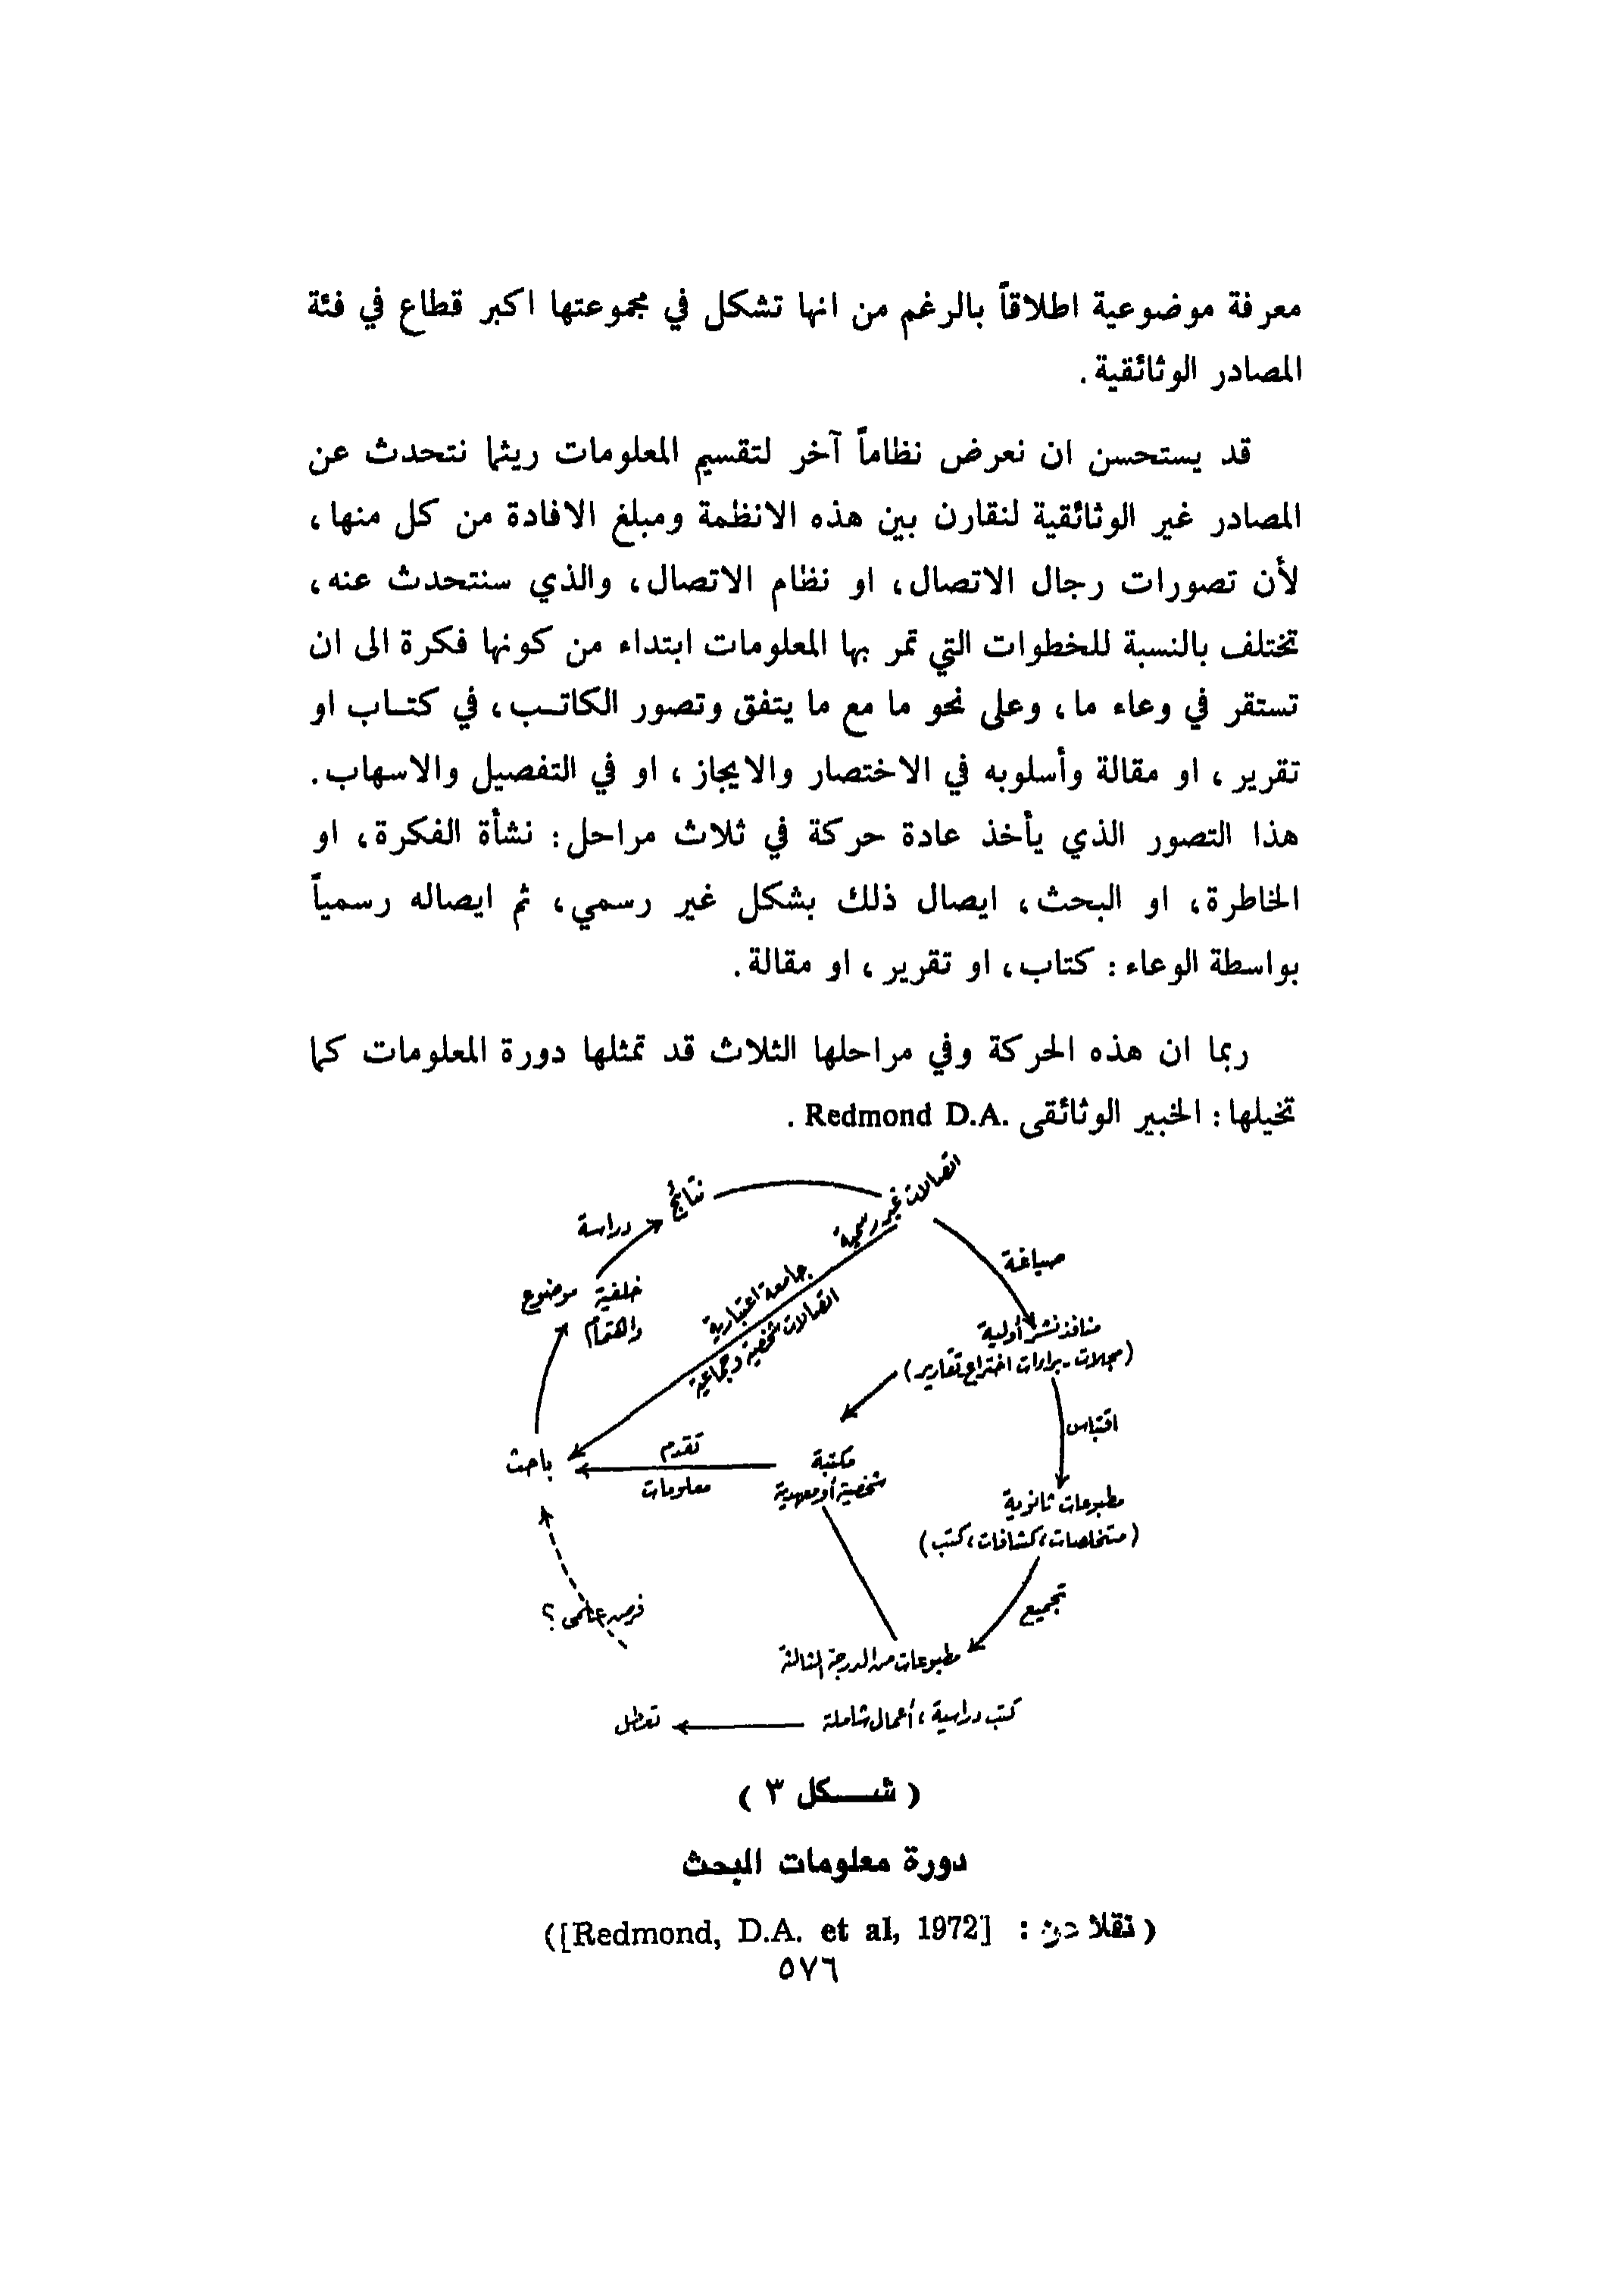 معرفة موضوعية اطلاقاً بالرغم من انها تشكل في مجموعتها اكبر قطاع في فئة
المصادر الوثائقية .
قد يستحسن ان نعرض نظاماً آخر لتقسيم المعلومات ريثما نتحدث عن
المصادر غير الوثائقية لنقارن بين هذه الانظمة ومبلغ الافادة من كل منها ،
لأن تصورات رجال الاتصال ، او نظام الاتصال ، والذي سنتحدث عنه ،
تختلف بالنسبة للخطوات التي تمر بها المعلومات ابتداء من كونها فكرة الى ان
تستقر في وعاء ما ، وعلى نحو ما مع ما يتفق وتصور الكاتــب ، في كتــاب او
تقرير ، او مقالة وأسلوبه في الاختصار والايجاز ، او في التفصيل والاسهاب .
هذا التصور الذي يأخذ عادة حركة في ثلاث مراحل : نشأة الفكرة ، او
الخاطرة ، او البحث ، ايصال ذلك بشكل غير رسمي ، ثم ايصاله رسمياً
بواسطة الوعاء : كتاب ، او تقرير ، او مقالة .
ربما ان هذه الحركة وفي مراحلها الثلاث قد تمثلها دورة المعلومات كما
تخيلها : الخبير الوثائقى Redmond D.A. .
اتصالات غير رسمية
نتائج
دراسة
صياغة
خلفية موضوع
واهتمام
جامعة اعتبارية
اتصالات شخصية وجماعية
منافذ نشر أولية
(مجلات - براءات اختراع تقارير)
اقتباس
باحث
تقدم
معلومات
مكتبة
شخصية أو معهدية
مطبوعات ثانوية
(مستخلصات ، كشافات ، كتب)
تجميع
علمى ؟
مطبوعات من الدرجة الثالثة
كتب دراسية ، أعمال شاملة
تعطل
( شـــكل ٣ )
دورة معلومات البحث
( نقلا عن : [Redmond, D.A. et al, 1972])
٥٧٦